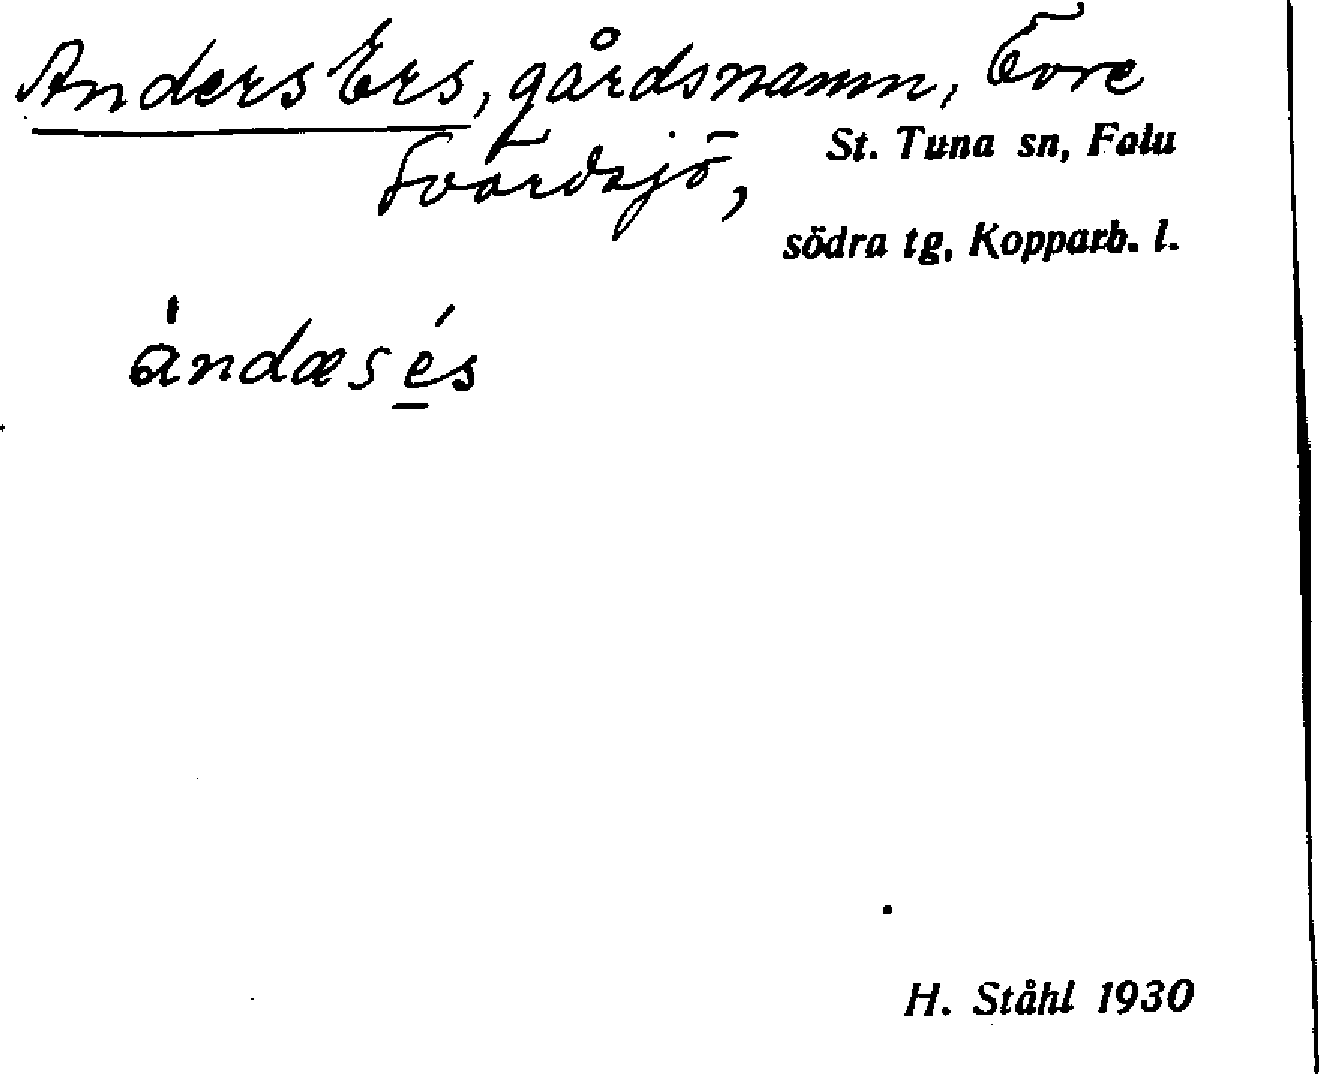 Anders Ers, gårdsnamn, Övre
Svärdsjö, St. Tuna sn, Falu
södra tg, Kopparb. l.
àndæs és
H. Ståhl 1930